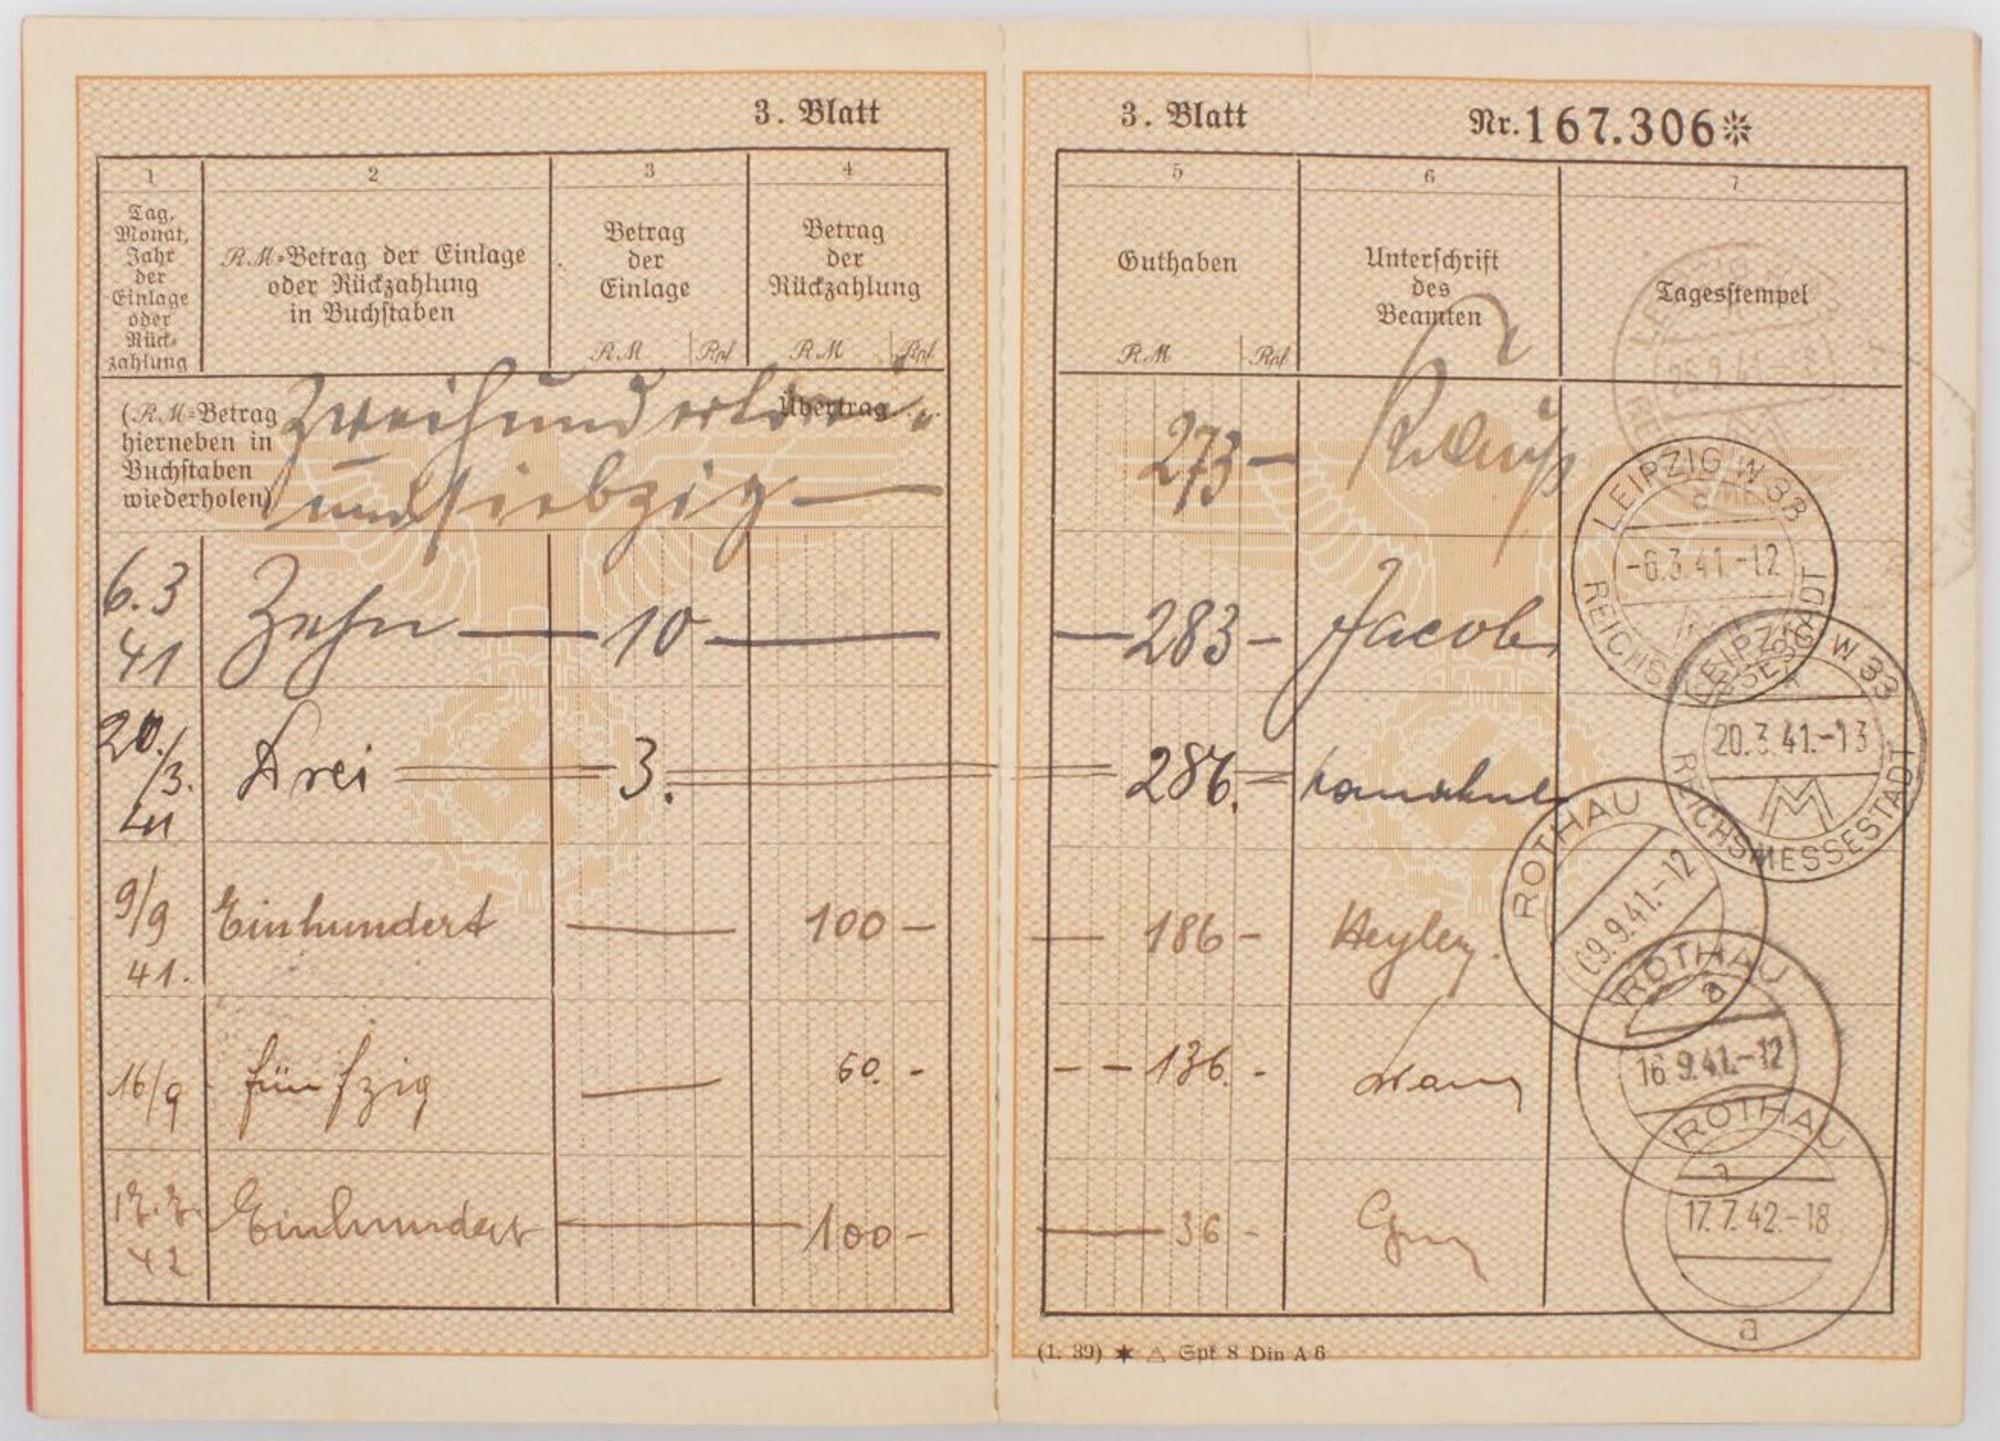 3. Blatt
1 2 3 4
Tag,
Monat,
Jahr
der
Einlage
oder
Rück-
zahlung
RM-Betrag der Einlage
oder Rückzahlung
in Buchstaben
Betrag
der
Einlage
RM Rpf
Betrag
der
Rückzahlung
RM Rpf
(RM-Betrag
hierneben in
Buchstaben
wiederholen)
Übertrag
Zweihundertdrei-
undsiebzig —
6.3
41
Zehn — 10 —
20./
/3.
41
Drei — 3. —
9/9
41.
Einhundert — 100 —
16/9
fünfzig — 50. -
17.7.
42
Einhundert — 100 -
3. Blatt
Nr. 167.306*
5 6 7
Guthaben
RM Rpf
Unterschrift
des
Beamten
Tagesstempel
273 —
— 283 - Jacob
LEIPZIG W 33
a
-6.3.41.-12
REICHSMESSESTADT
286. —
LEIPZIG W 33
20.3.41.-13
REICHSMESSESTADT
— 186 -
ROTHAU
09.9.41.-12
a
- - 136. -
ROTHAU
16.9.41.-12
a
— 36 -
ROTHAU
17.7.42.-18
a
(1. 39) ✶ △ Gpf 8 Din A 6